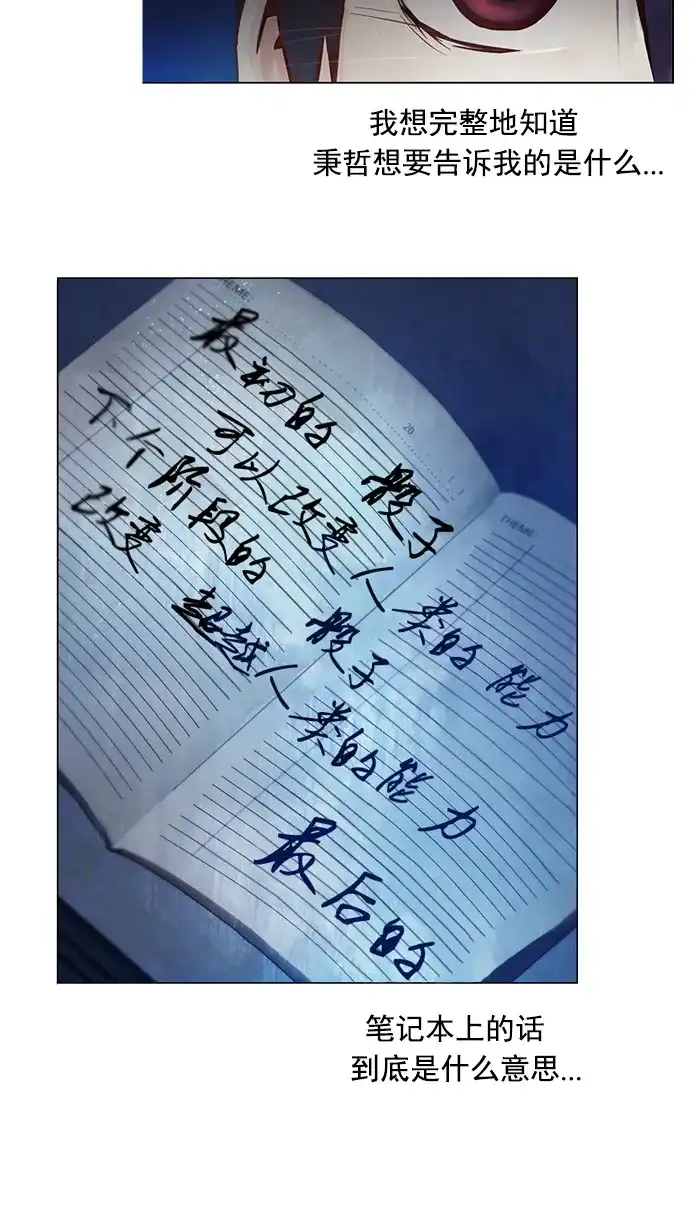 我想完整地知道
秉哲想要告诉我的是什么...
THEME:
20
最初的 骰子
可以改变人类的能力
THEME:
下个阶段的 骰子
改变 超越人类的能力
最后的
笔记本上的话
到底是什么意思...